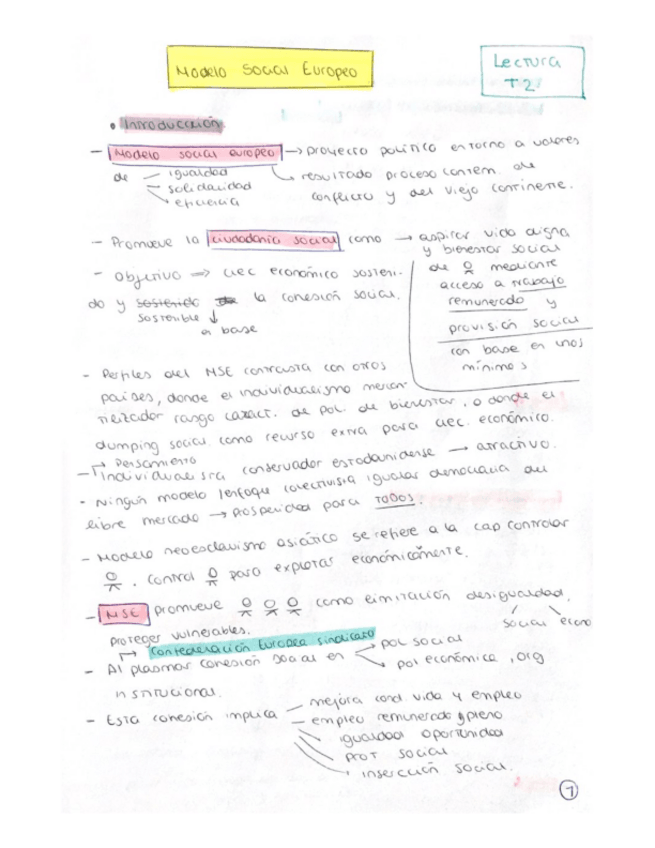 Modelo Social Europeo
Lectura
T2
• Introducción.
- Modelo social europeo → proyecto político entorno a valores
de — igualdad
— solidaridad
→ eficiencia
→ resultado proceso contem. de
conflicto y del viejo continente.
- Promueve la ciudadanía social como → aspirar vida digna
y bienestar social
de mediante
acceso a trabajo
remunerado y
provisión social
con base en unos
mínimos
- Objetivo ⇒ crec económico sosteni-
do y sostenido la cohesión social.
sostenible ↓
en base
- Perfiles del MSE contrasta con otros
países, donde el individualismo mercan-
tilizador rasgo caract. de pol. de bienestar, o donde el
dumping social como recurso extra para crec. económico.
→ Pensamiento
- Individualista conservador estadounidense → atractivo.
- Ningún modelo /enfoque colectivista igualar democracia del
libre mercado → prosperidad para TODOS.
- Modelo neoesclavismo asiático se refiere a la cap controlar
. Control para explotar económicamente.
- MSE promueve como eliminación desigualdad,
social econo
proteger vulnerables.
→ Confederación Europea sindicato
- Al plasmar cohesión social en → pol social
→ pol económica, org
institucional.
- Esta cohesión implica — mejora cond vida y empleo
— empleo remunerado y pleno
igualdad oportunidad
prot social
inserción social.
1